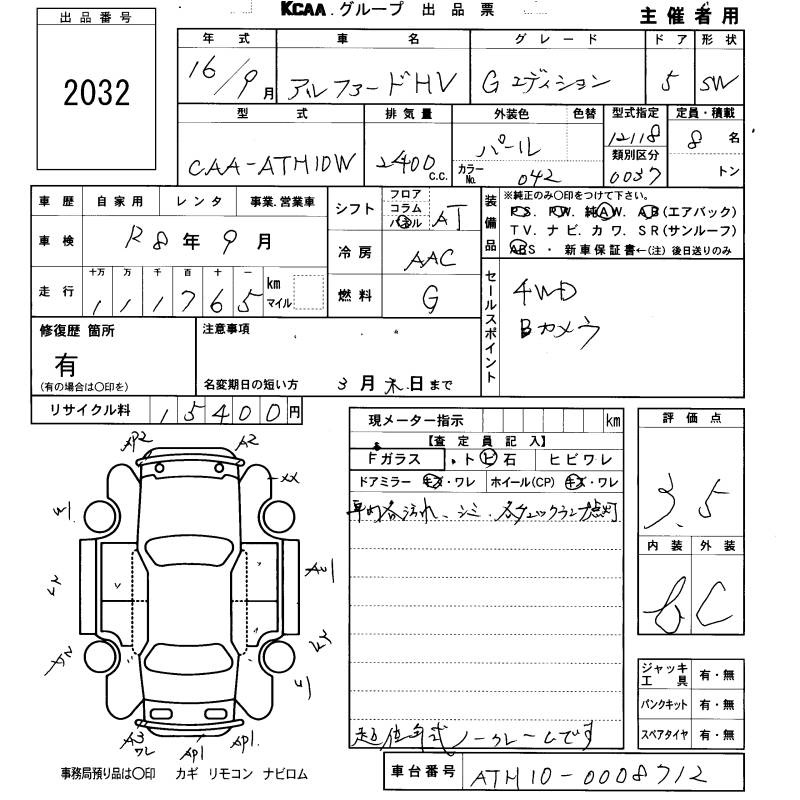 KCAA.グループ 出品票
主催者用
出品番号
2032
年式 車名 グレード ドア 形状
16/9月 アルファードHV Gエディション 5 SW
型式 排気量 外装色 色替 型式指定 定員・積載
CAA-ATH10W 2400 c.c. パール 12118 8名
カラーNo. 042 類別区分 0037 トン
車歴 自家用 レンタ 事業.営業車
車検 R8年9月
走行 十万 万 千 百 十 一 km マイル
111765
シフト フロア コラム パネル AT
冷房 AAC
燃料 G
装備品
※純正のみ〇印をつけて下さい。
PS. PW. 純AW. AB(エアバッグ)
TV. ナビ. カワ. SR(サンルーフ)
ABS・新車保証書←(注)後日送りのみ
セールスポイント
4WD
Bカメラ
修復歴 箇所
有
(有の場合は〇印を)
注意事項
名変期日の短い方 3月末日まで
リサイクル料 15400円
現メーター指示 km
【査定員記入】
Fガラス ・ト ビ 石 ヒビワレ
ドアミラー キズ・ワレ ホイール(CP) キズ・ワレ
車内各汚れ、シミ・各チェックランプ点灯
超低年式ノークレームです
評価点
3.5
内装 外装
C
ジャッキ工具 有・無
パンクキット 有・無
スペアタイヤ 有・無
車台番号 ATH10-0008712
AP2 A2
XX
A2
A3
ワレ
AP1 AP1
事務局預り品は〇印 カギ リモコン ナビロム